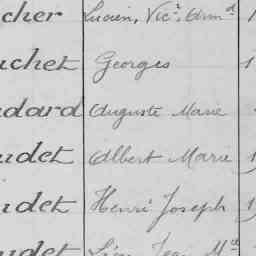 cher Lucien, Vic.r Arm.d 1
uchet Georges 1
udard Auguste Marie
udet Albert Marie 1
udet Henri Joseph 1
udet Léon Jean M.el